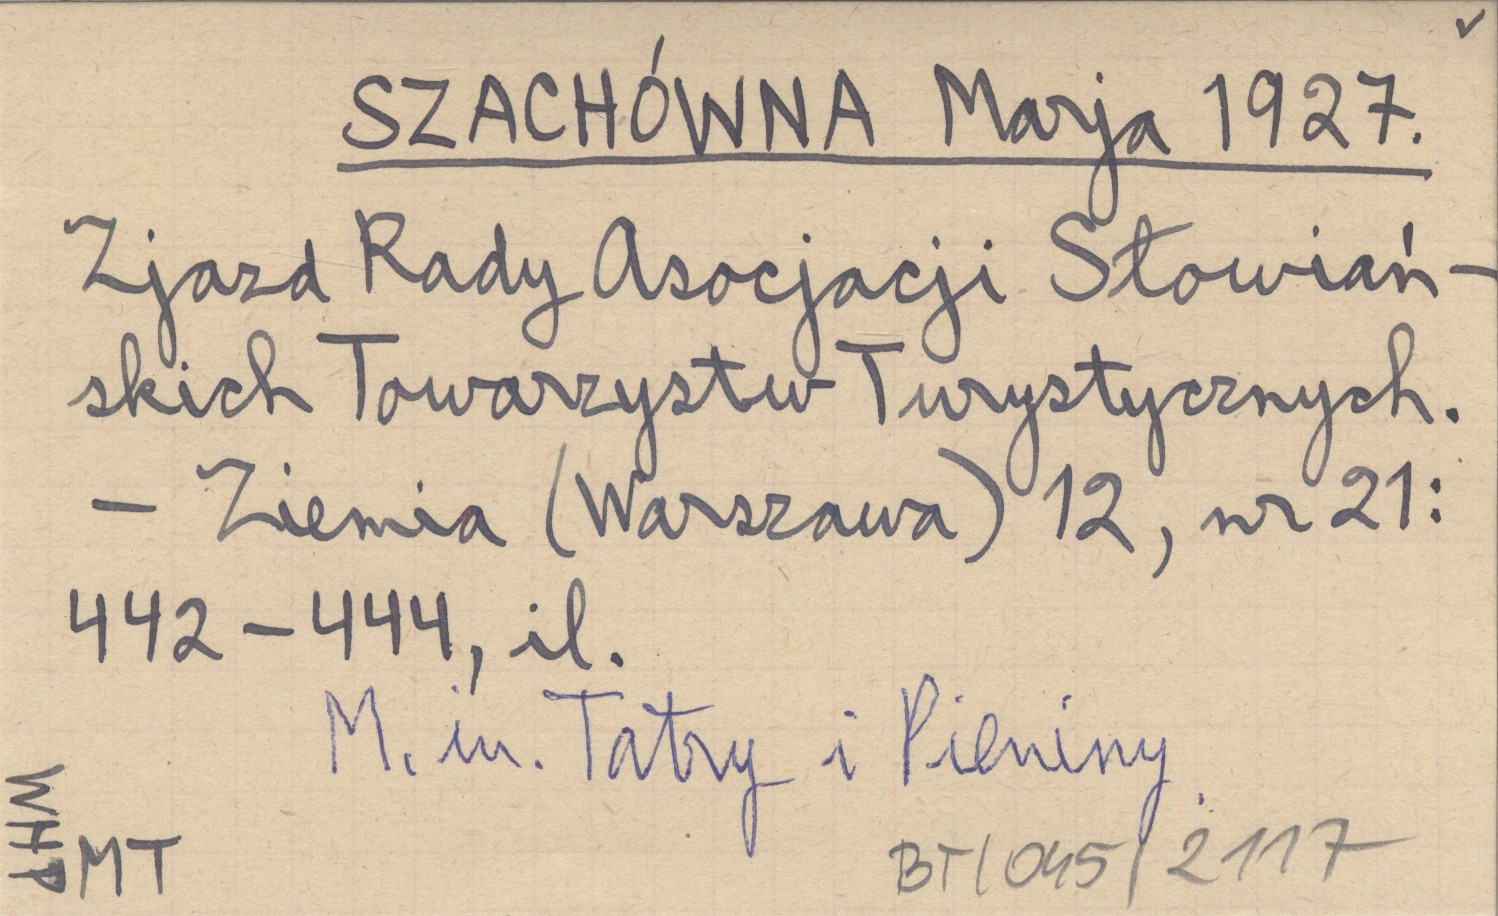 ✓
SZACHÓWNA Marja 1927.
Zjazd Rady Asocjacji Słowiań-
skich Towarzystw Turystycznych.
- Ziemia (Warszawa) 12, nr 21:
442-444, il.
M. in. Tatry i Pieniny.
WHP
MT
BT/045/2117